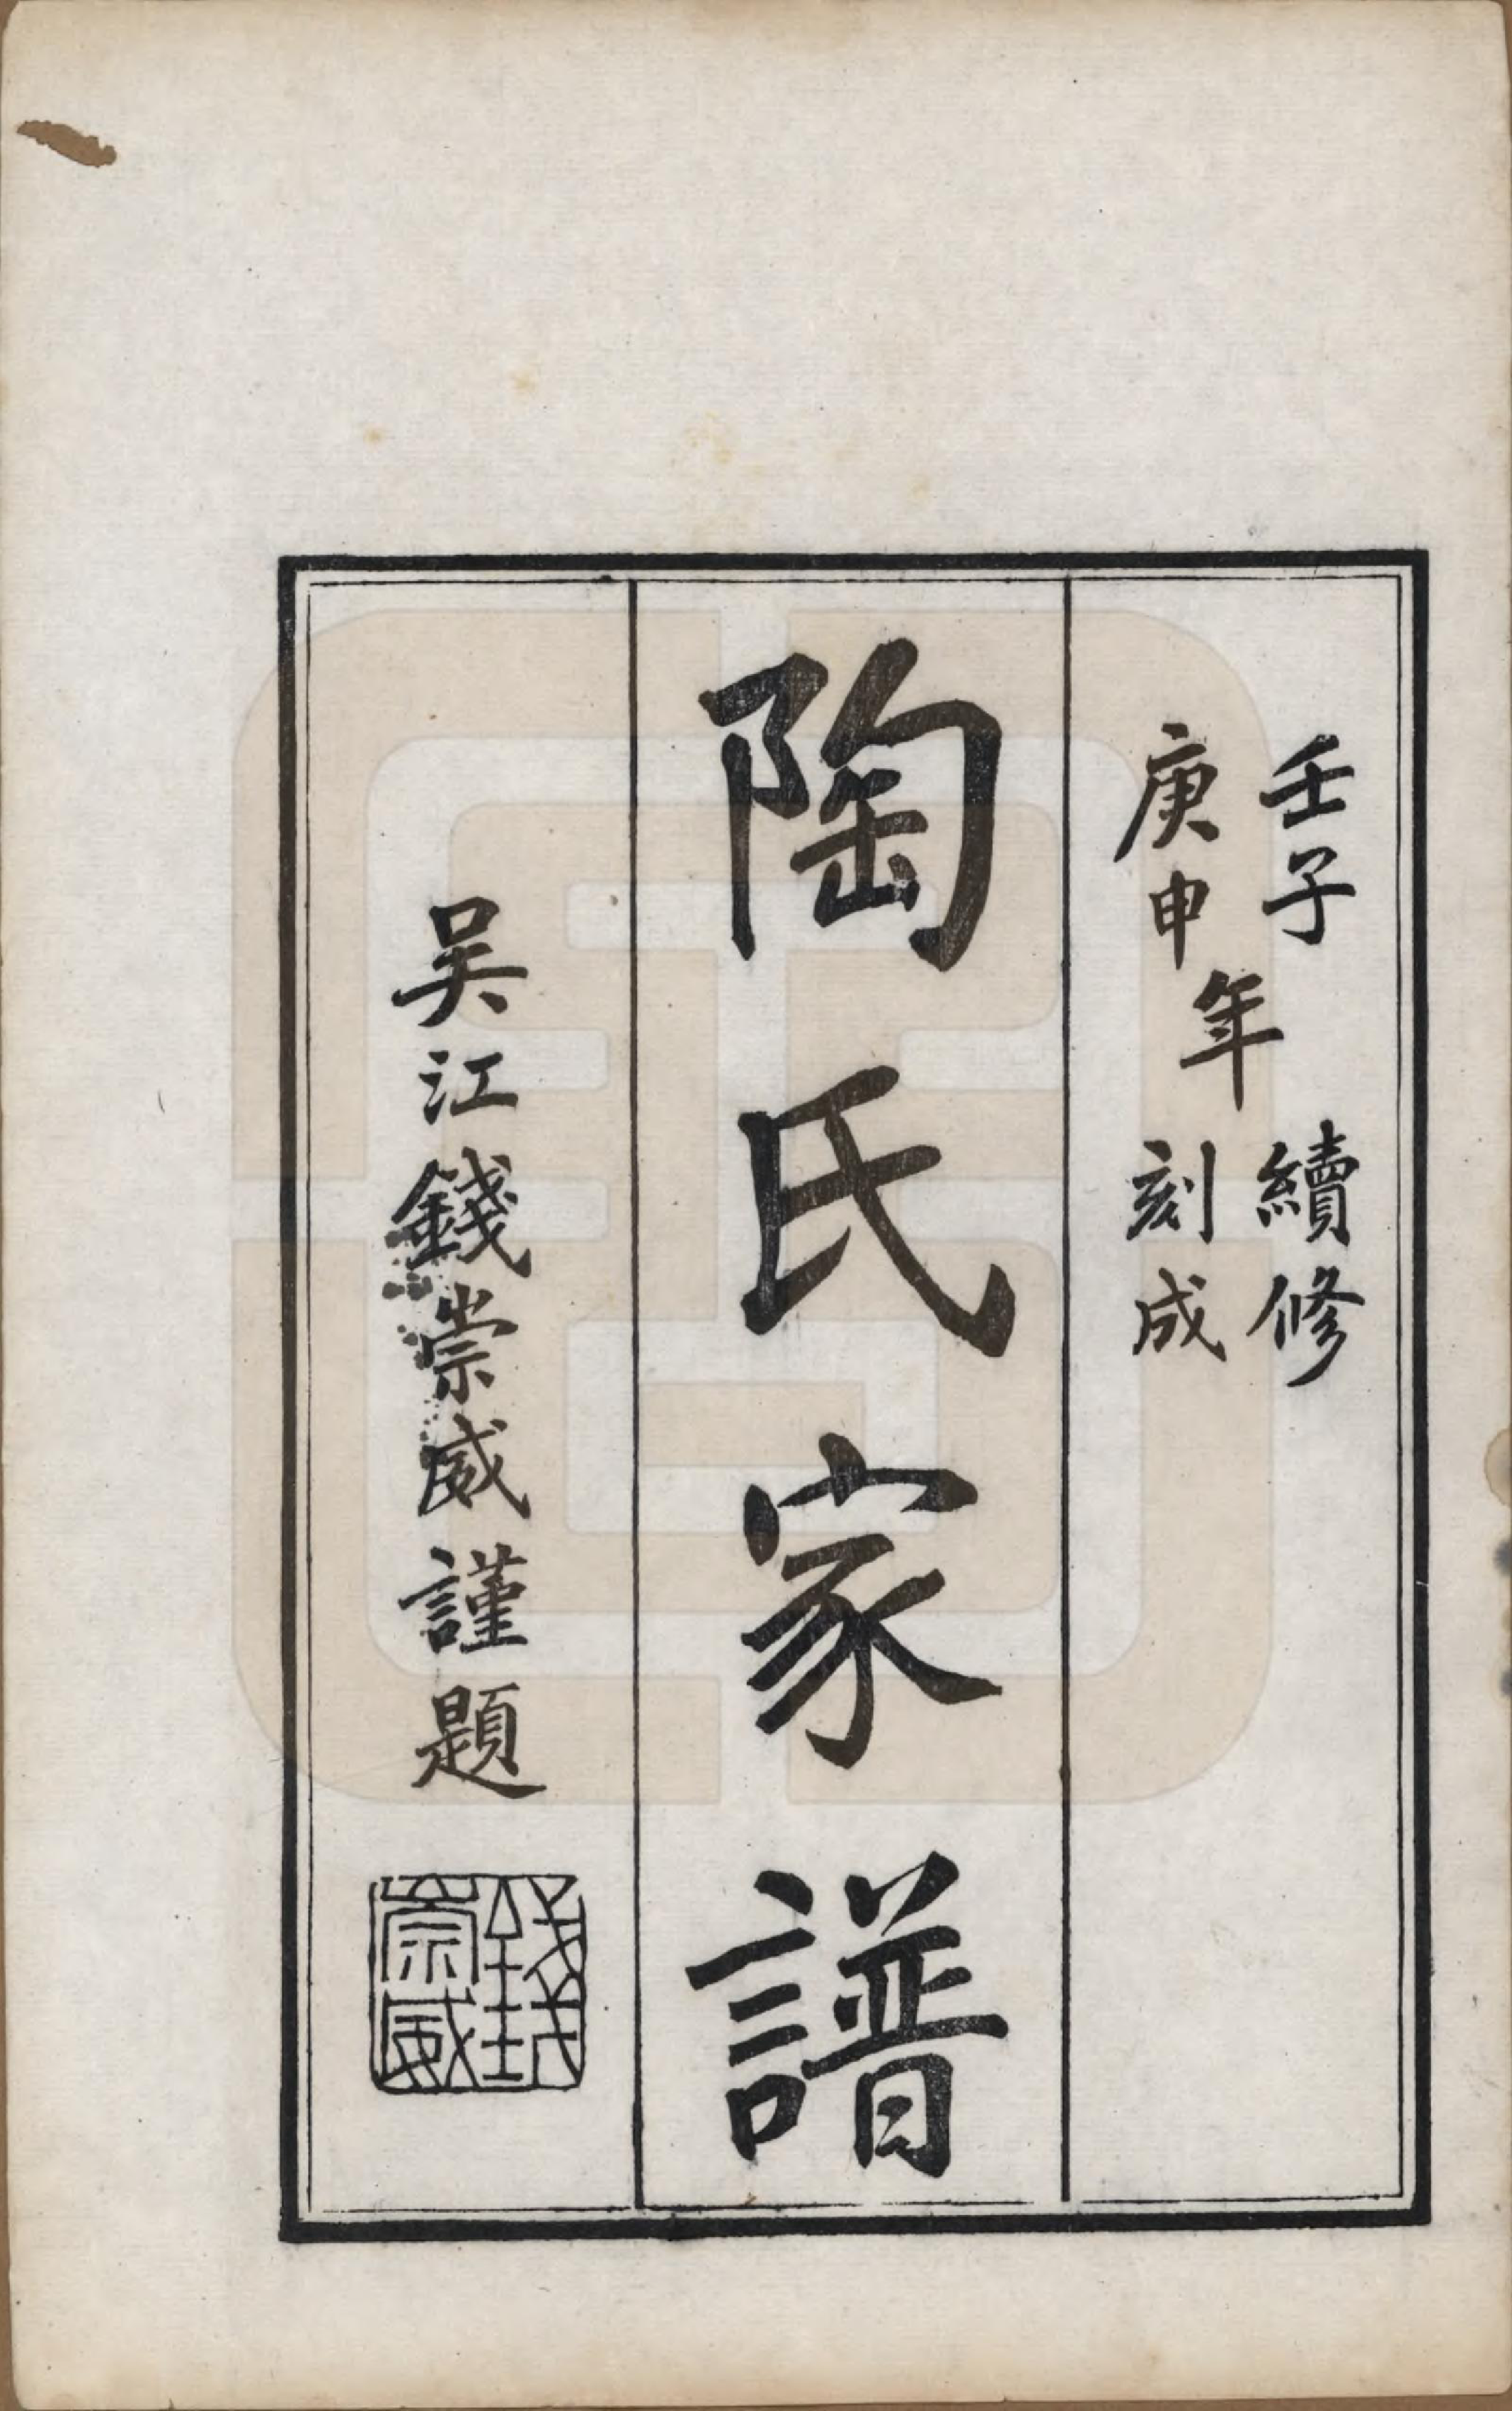 壬子 續修
庚申年 刻成
陶氏家譜
吳江錢崇威謹題
錢崇威